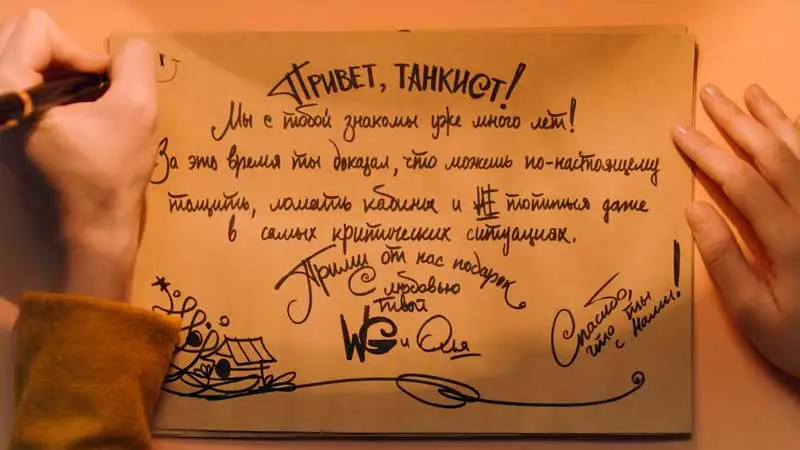 ПРИВЕТ, ТАНКИСТ!
Мы с тобой знакомы уже много лет!
За это время ты доказал, что можешь по-настоящему
тащить, ломать кабины и НЕ топиться даже
в самых критических ситуациях.
Прими от нас подарок
С любовью
твой
WG и Оля
Спасибо,
что ты
с нами!